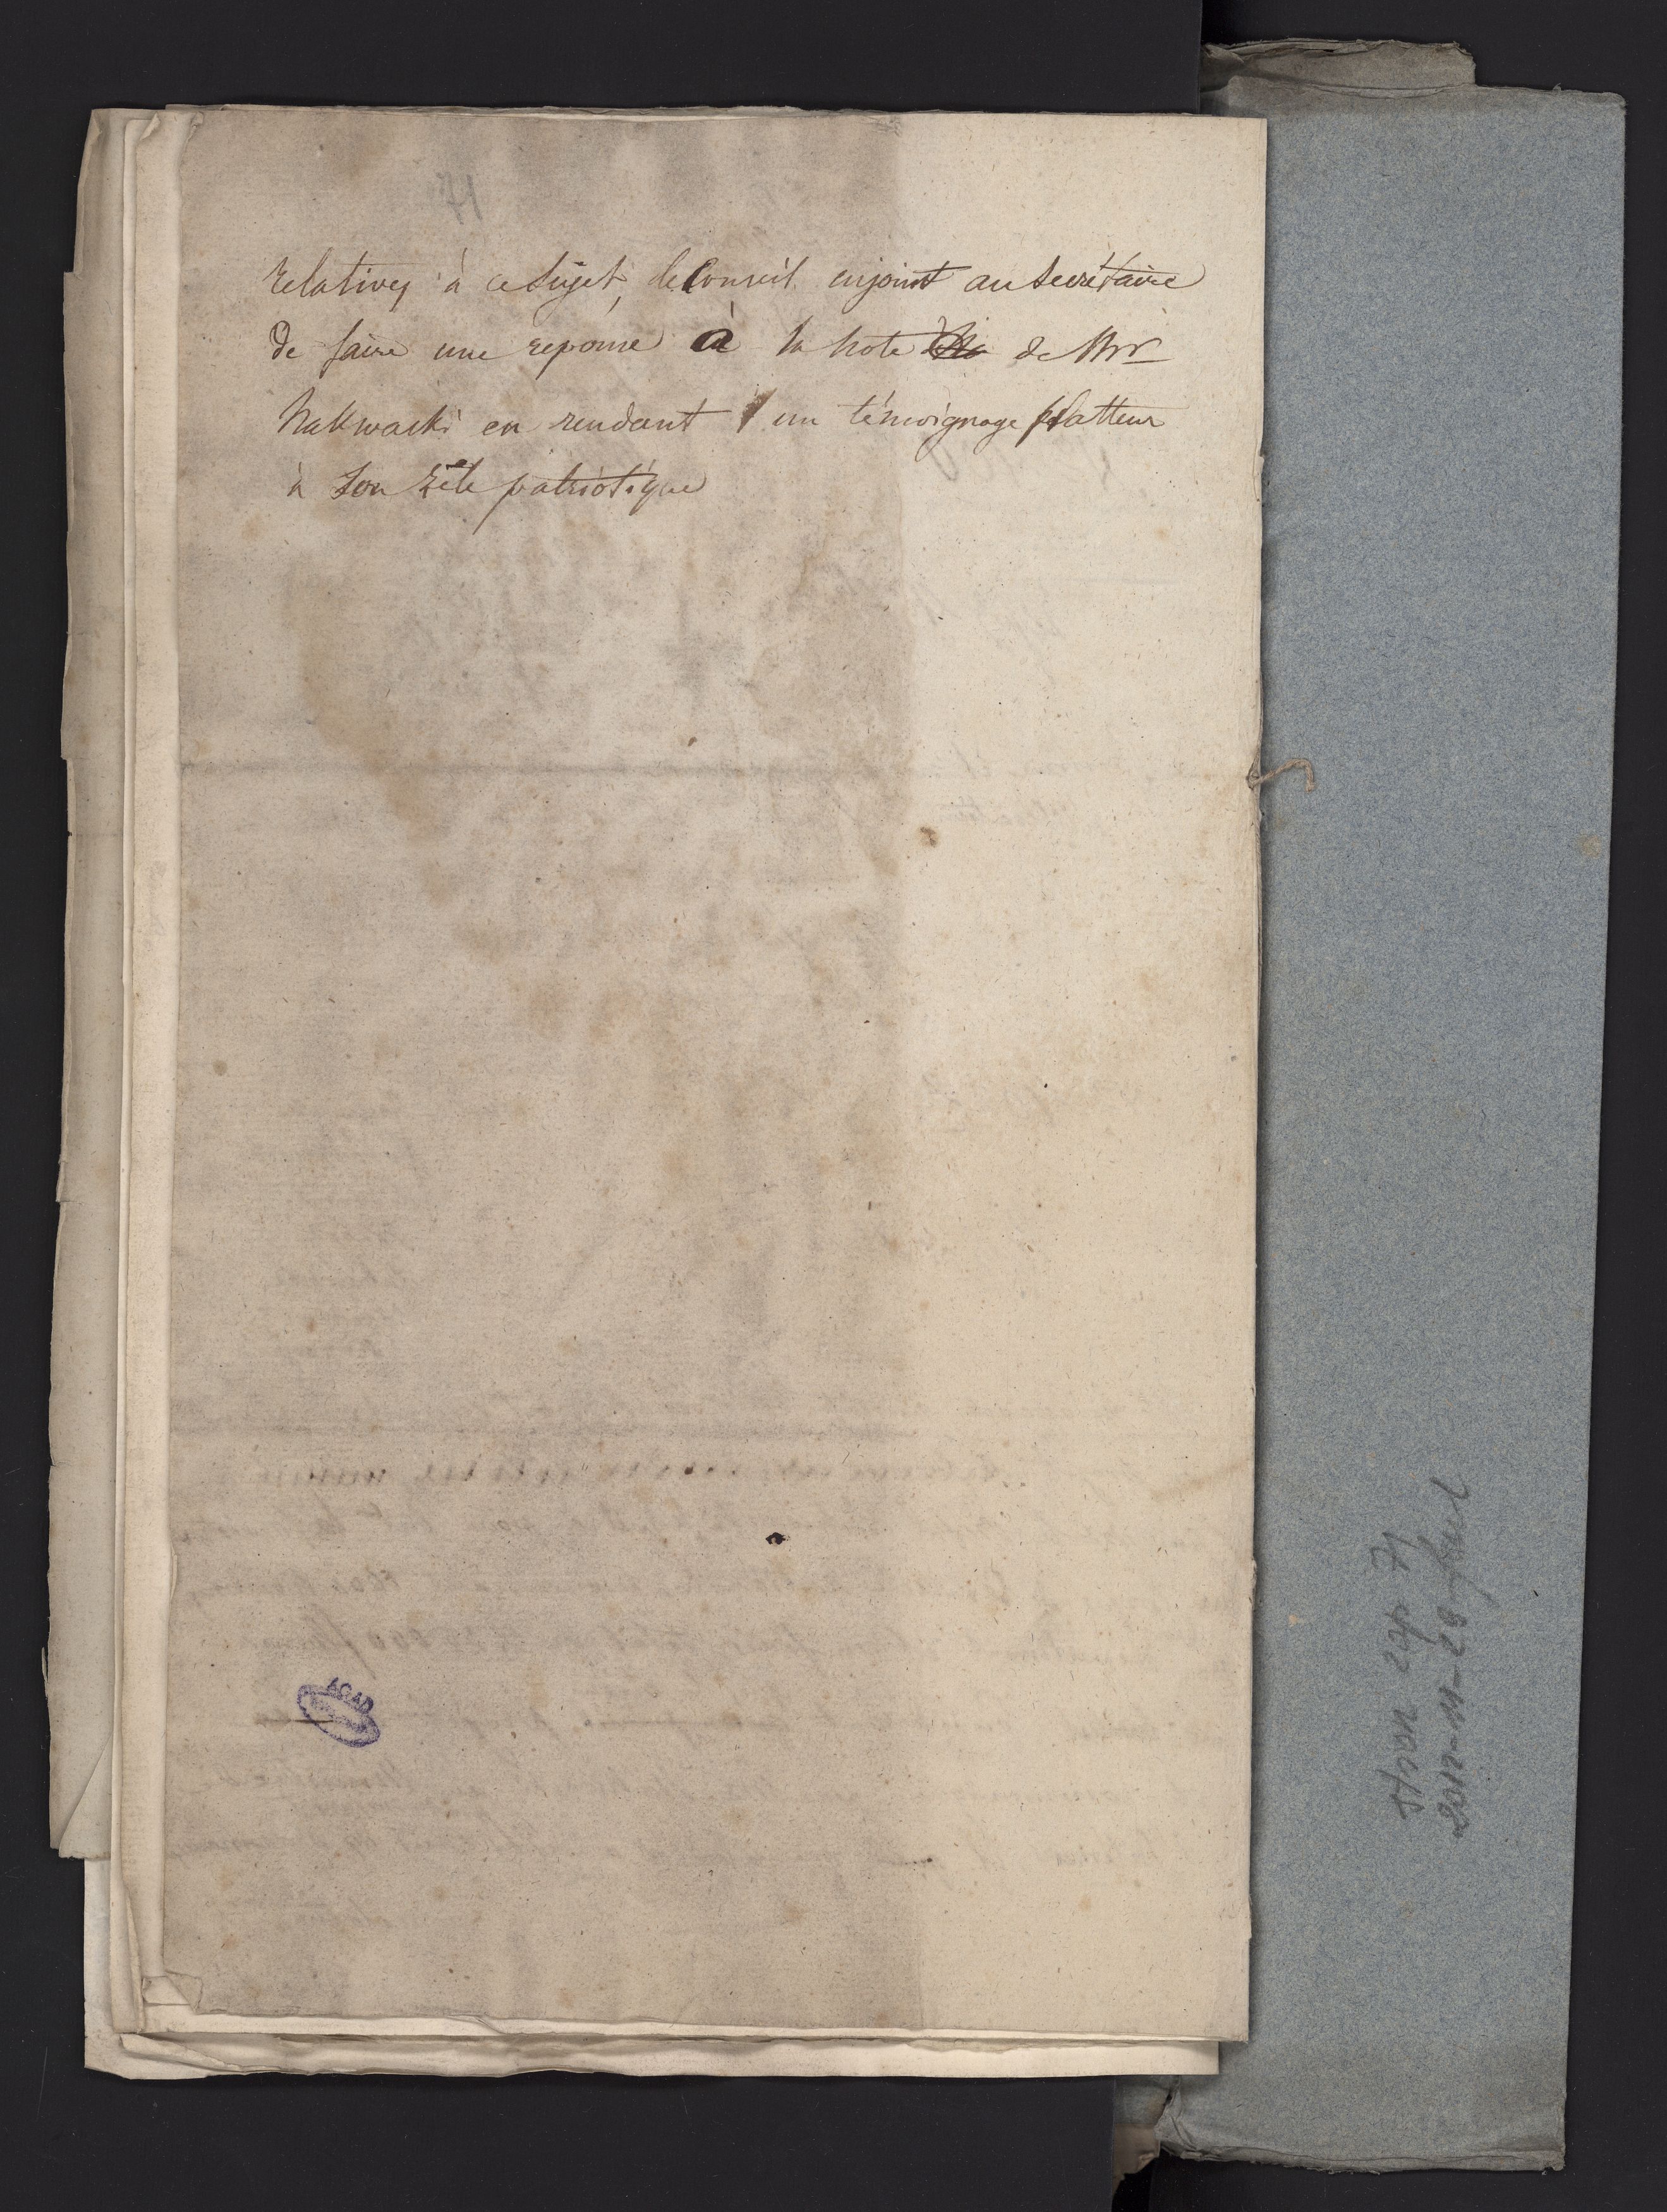 relatives à ce sujet, le Conseil enjoint au secrétaire
de faire une reponse à la note de Mr
Nakwaski en rendant un témoignage flatteur
à son zèle patriotique
AGAD
stron zap 71
2012-11-29